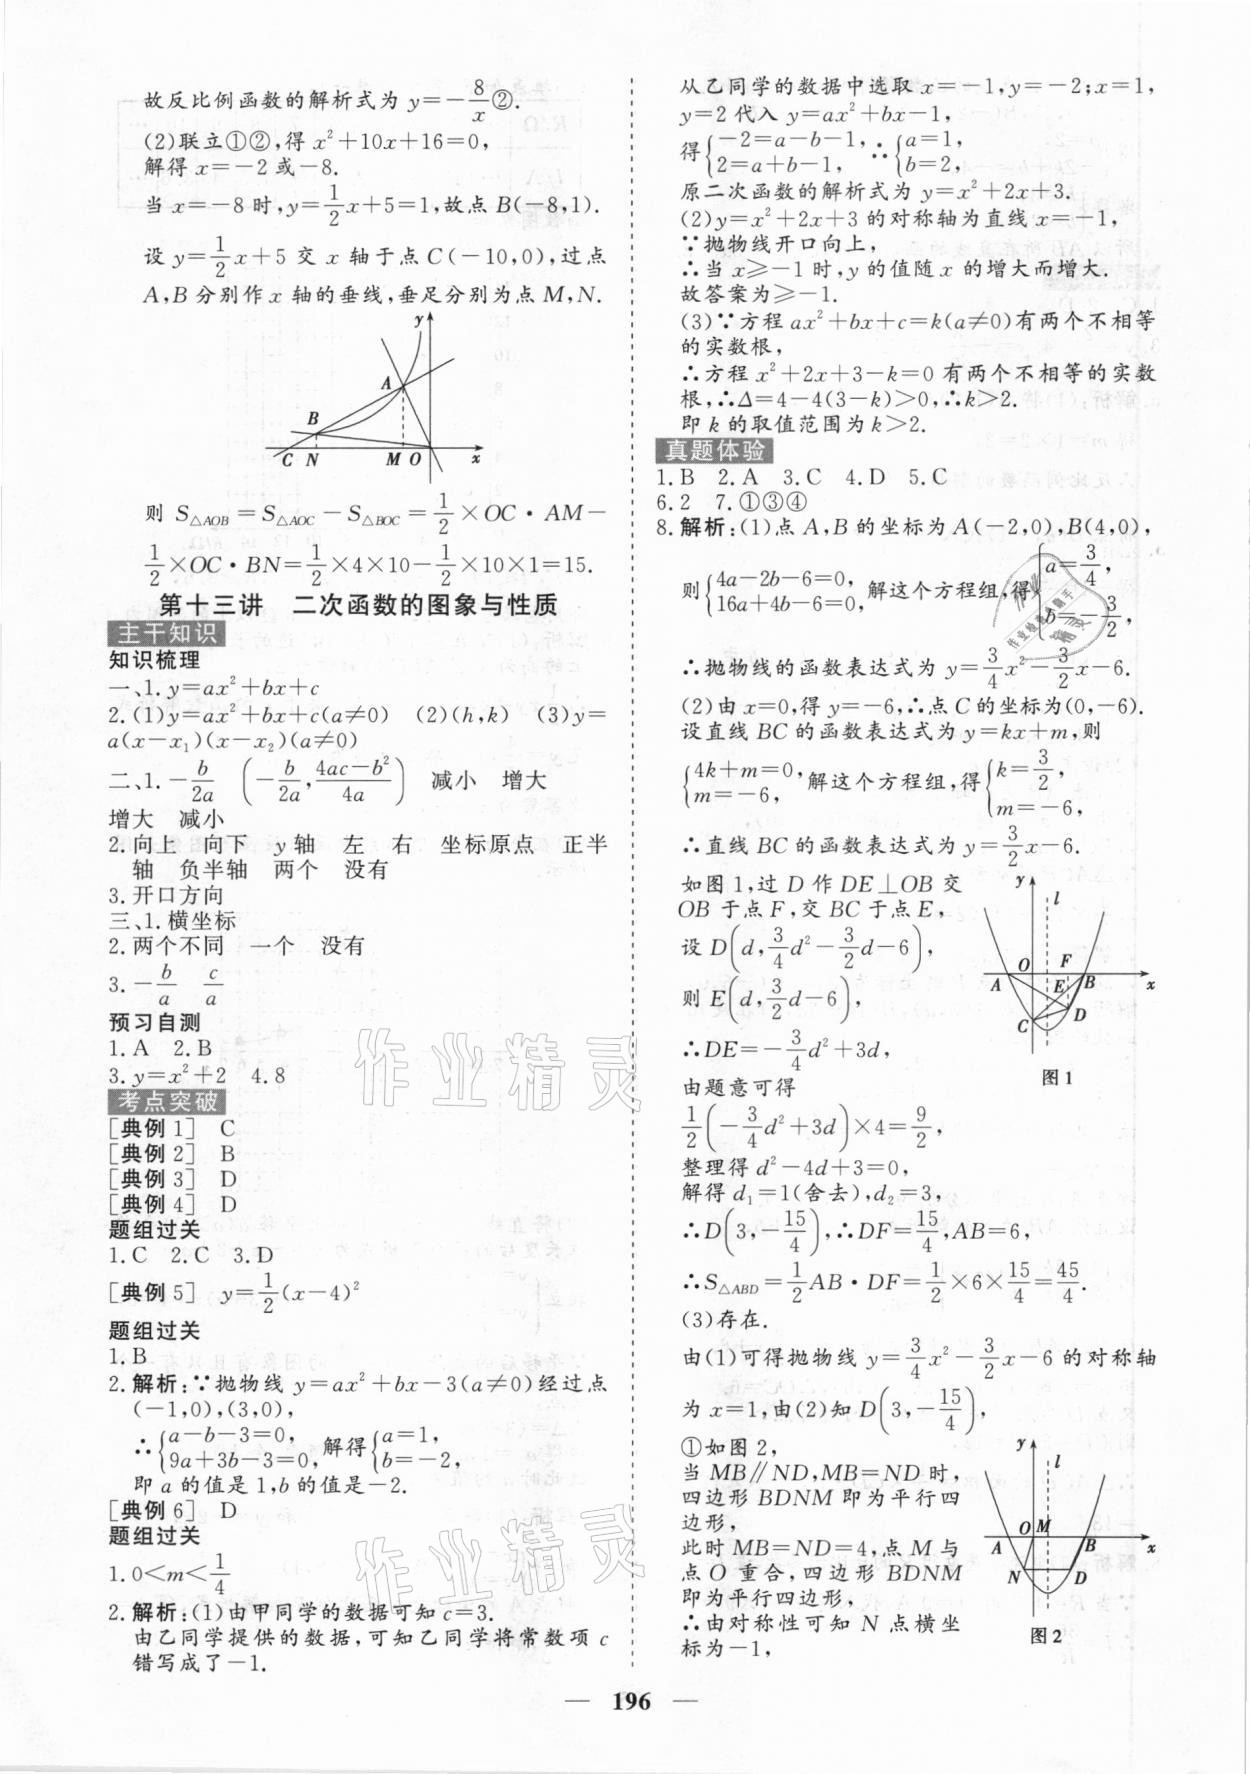 故反比例函数的解析式为 y=-8/x②.
(2)联立①②,得 x²+10x+16=0,
解得 x=-2 或-8.
当 x=-8 时,y=1/2x+5=1,故点 B(-8,1).
设 y=1/2x+5 交 x 轴于点 C(-10,0),过点
A,B 分别作 x 轴的垂线,垂足分别为点 M,N.
y
A
B
C N M O x
则 S△AOB=S△AOC-S△BOC=1/2×OC·AM-
1/2×OC·BN=1/2×4×10-1/2×10×1=15.
第十三讲 二次函数的图象与性质
主干知识
知识梳理
一、1. y=ax²+bx+c
2.(1)y=ax²+bx+c(a≠0) (2)(h,k) (3)y=
a(x-x₁)(x-x₂)(a≠0)
二、1.-b/2a (-b/2a,4ac-b²/4a) 减小 增大
增大 减小
2.向上 向下 y 轴 左 右 坐标原点 正半
轴 负半轴 两个 没有
3.开口方向
三、1.横坐标
2.两个不同 一个 没有
3.-b/a c/a
预习自测
1.A 2.B
3.y=x²+2 4.8
考点突破
[典例 1] C
[典例 2] B
[典例 3] D
[典例 4] D
题组过关
1.C 2.C 3.D
[典例 5] y=1/2(x-4)²
题组过关
1.B
2.解析:∵抛物线 y=ax²+bx-3(a≠0)经过点
(-1,0),(3,0),
∴{a-b-3=0, 9a+3b-3=0, 解得{a=1, b=-2,
即 a 的值是 1,b 的值是-2.
[典例 6] D
题组过关
1.0<m<1/4
2.解析:(1)由甲同学的数据可知 c=3.
由乙同学提供的数据,可知乙同学将常数项 c
错写成了-1.
从乙同学的数据中选取 x=-1,y=-2;x=1,
y=2 代入 y=ax²+bx-1,
得{-2=a-b-1, 2=a+b-1, ∴{a=1, b=2,
原二次函数的解析式为 y=x²+2x+3.
(2)y=x²+2x+3 的对称轴为直线 x=-1,
∵抛物线开口向上,
∴当 x≥-1 时,y 的值随 x 的增大而增大.
故答案为≥-1.
(3)∵方程 ax²+bx+c=k(a≠0)有两个不相等
的实数根,
∴方程 x²+2x+3-k=0 有两个不相等的实数
根,∴Δ=4-4(3-k)>0,∴k>2.
即 k 的取值范围为 k>2.
真题体验
1.B 2.A 3.C 4.D 5.C
6.2 7.①③④
8.解析:(1)点 A,B 的坐标为 A(-2,0),B(4,0),
则{4a-2b-6=0, 16a+4b-6=0, 解这个方程组,得{a=3/4, b=-3/2,
∴抛物线的函数表达式为 y=3/4x²-3/2x-6.
(2)由 x=0,得 y=-6,∴点 C 的坐标为(0,-6).
设直线 BC 的函数表达式为 y=kx+m,则
{4k+m=0, m=-6, 解这个方程组,得{k=3/2, m=-6,
∴直线 BC 的函数表达式为 y=3/2x-6.
如图 1,过 D 作 DE⊥OB 交
OB 于点 F,交 BC 于点 E,
设 D(d,3/4d²-3/2d-6),
则 E(d,3/2d-6),
∴DE=-3/4d²+3d,
由题意可得
1/2(-3/4d²+3d)×4=9/2,
整理得 d²-4d+3=0,
解得 d₁=1(舍去),d₂=3,
y l
A O F E B x
C D
图 1
∴D(3,-15/4),∴DF=15/4,AB=6,
∴S△ABD=1/2AB·DF=1/2×6×15/4=45/4.
(3)存在.
由(1)可得抛物线 y=3/4x²-3/2x-6 的对称轴
为 x=1,由(2)知 D(3,-15/4),
①如图 2,
当 MB∥ND,MB=ND 时,
四边形 BDNM 即为平行四
边形,
此时 MB=ND=4,点 M 与
点 O 重合,四边形 BDNM
即为平行四边形,
∴由对称性可知 N 点横坐
标为-1,
y l
A O M B x
N D
图 2
— 196 —
作业精灵
作业精灵
作业检查小助手
精灵